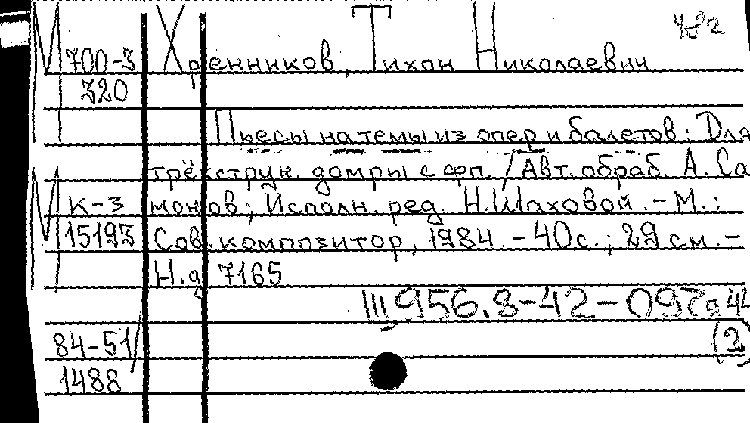 М 700-3 Хренников, Тихон Николаевич
320
Пьесы на темы из опер и балетов: Для
трёхструн. домры с фп. / Авт. обраб. А. Са
М К-3 монов; Исполн. ред. Н. Шаховой. - М.:
15193 Сов. композитор, 1984. - 40с.; 29 см. -
Н.д. 7165
Ш 956.8-42-097
84-51/ (2)
1488